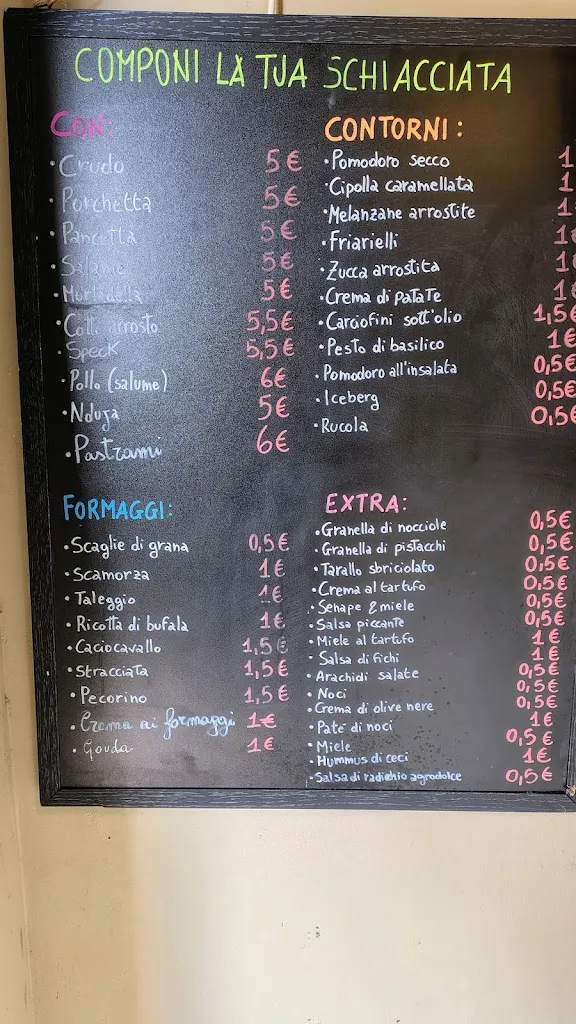 COMPONI LA TUA SCHIACCIATA
CON:
• Crudo 5€
• Porchetta 5€
• Pancetta 5€
• Salame 5€
• Mortadella 5€
• Cotto arrosto 5,5€
• Speck 5,5€
• Pollo (salume) 6€
• Nduja 5€
• Pastrami 6€
CONTORNI:
• Pomodoro secco 1
• Cipolla caramellata 1
• Melanzane arrostite 1
• Friarielli 1€
• Zucca arrostita 1€
• Crema di patate 1€
• Carciofini sott'olio 1,5€
• Pesto di basilico 1€
• Pomodoro all'insalata 0,5€
• Iceberg 0,5€
• Rucola 0,5€
FORMAGGI:
• Scaglie di grana 0,5€
• Scamorza 1€
• Taleggio 1€
• Ricotta di bufala 1€
• Caciocavallo 1,5€
• Stracciata 1,5€
• Pecorino 1,5€
• Crema ai formaggi 1€
• Gouda 1€
EXTRA:
• Granella di nocciole 0,5€
• Granella di pistacchi 0,5€
• Tarallo sbriciolato 0,5€
• Crema al tartufo 0,5€
• Senape & miele 0,5€
• Salsa piccante 0,5€
• Miele al tartufo 1€
• Salsa di fichi 1€
• Arachidi salate 0,5€
• Noci 0,5€
• Crema di olive nere 0,5€
• Patè di noci 1€
• Miele 0,5€
• Hummus di ceci 1€
• Salsa di radichio agrodolce 0,5€